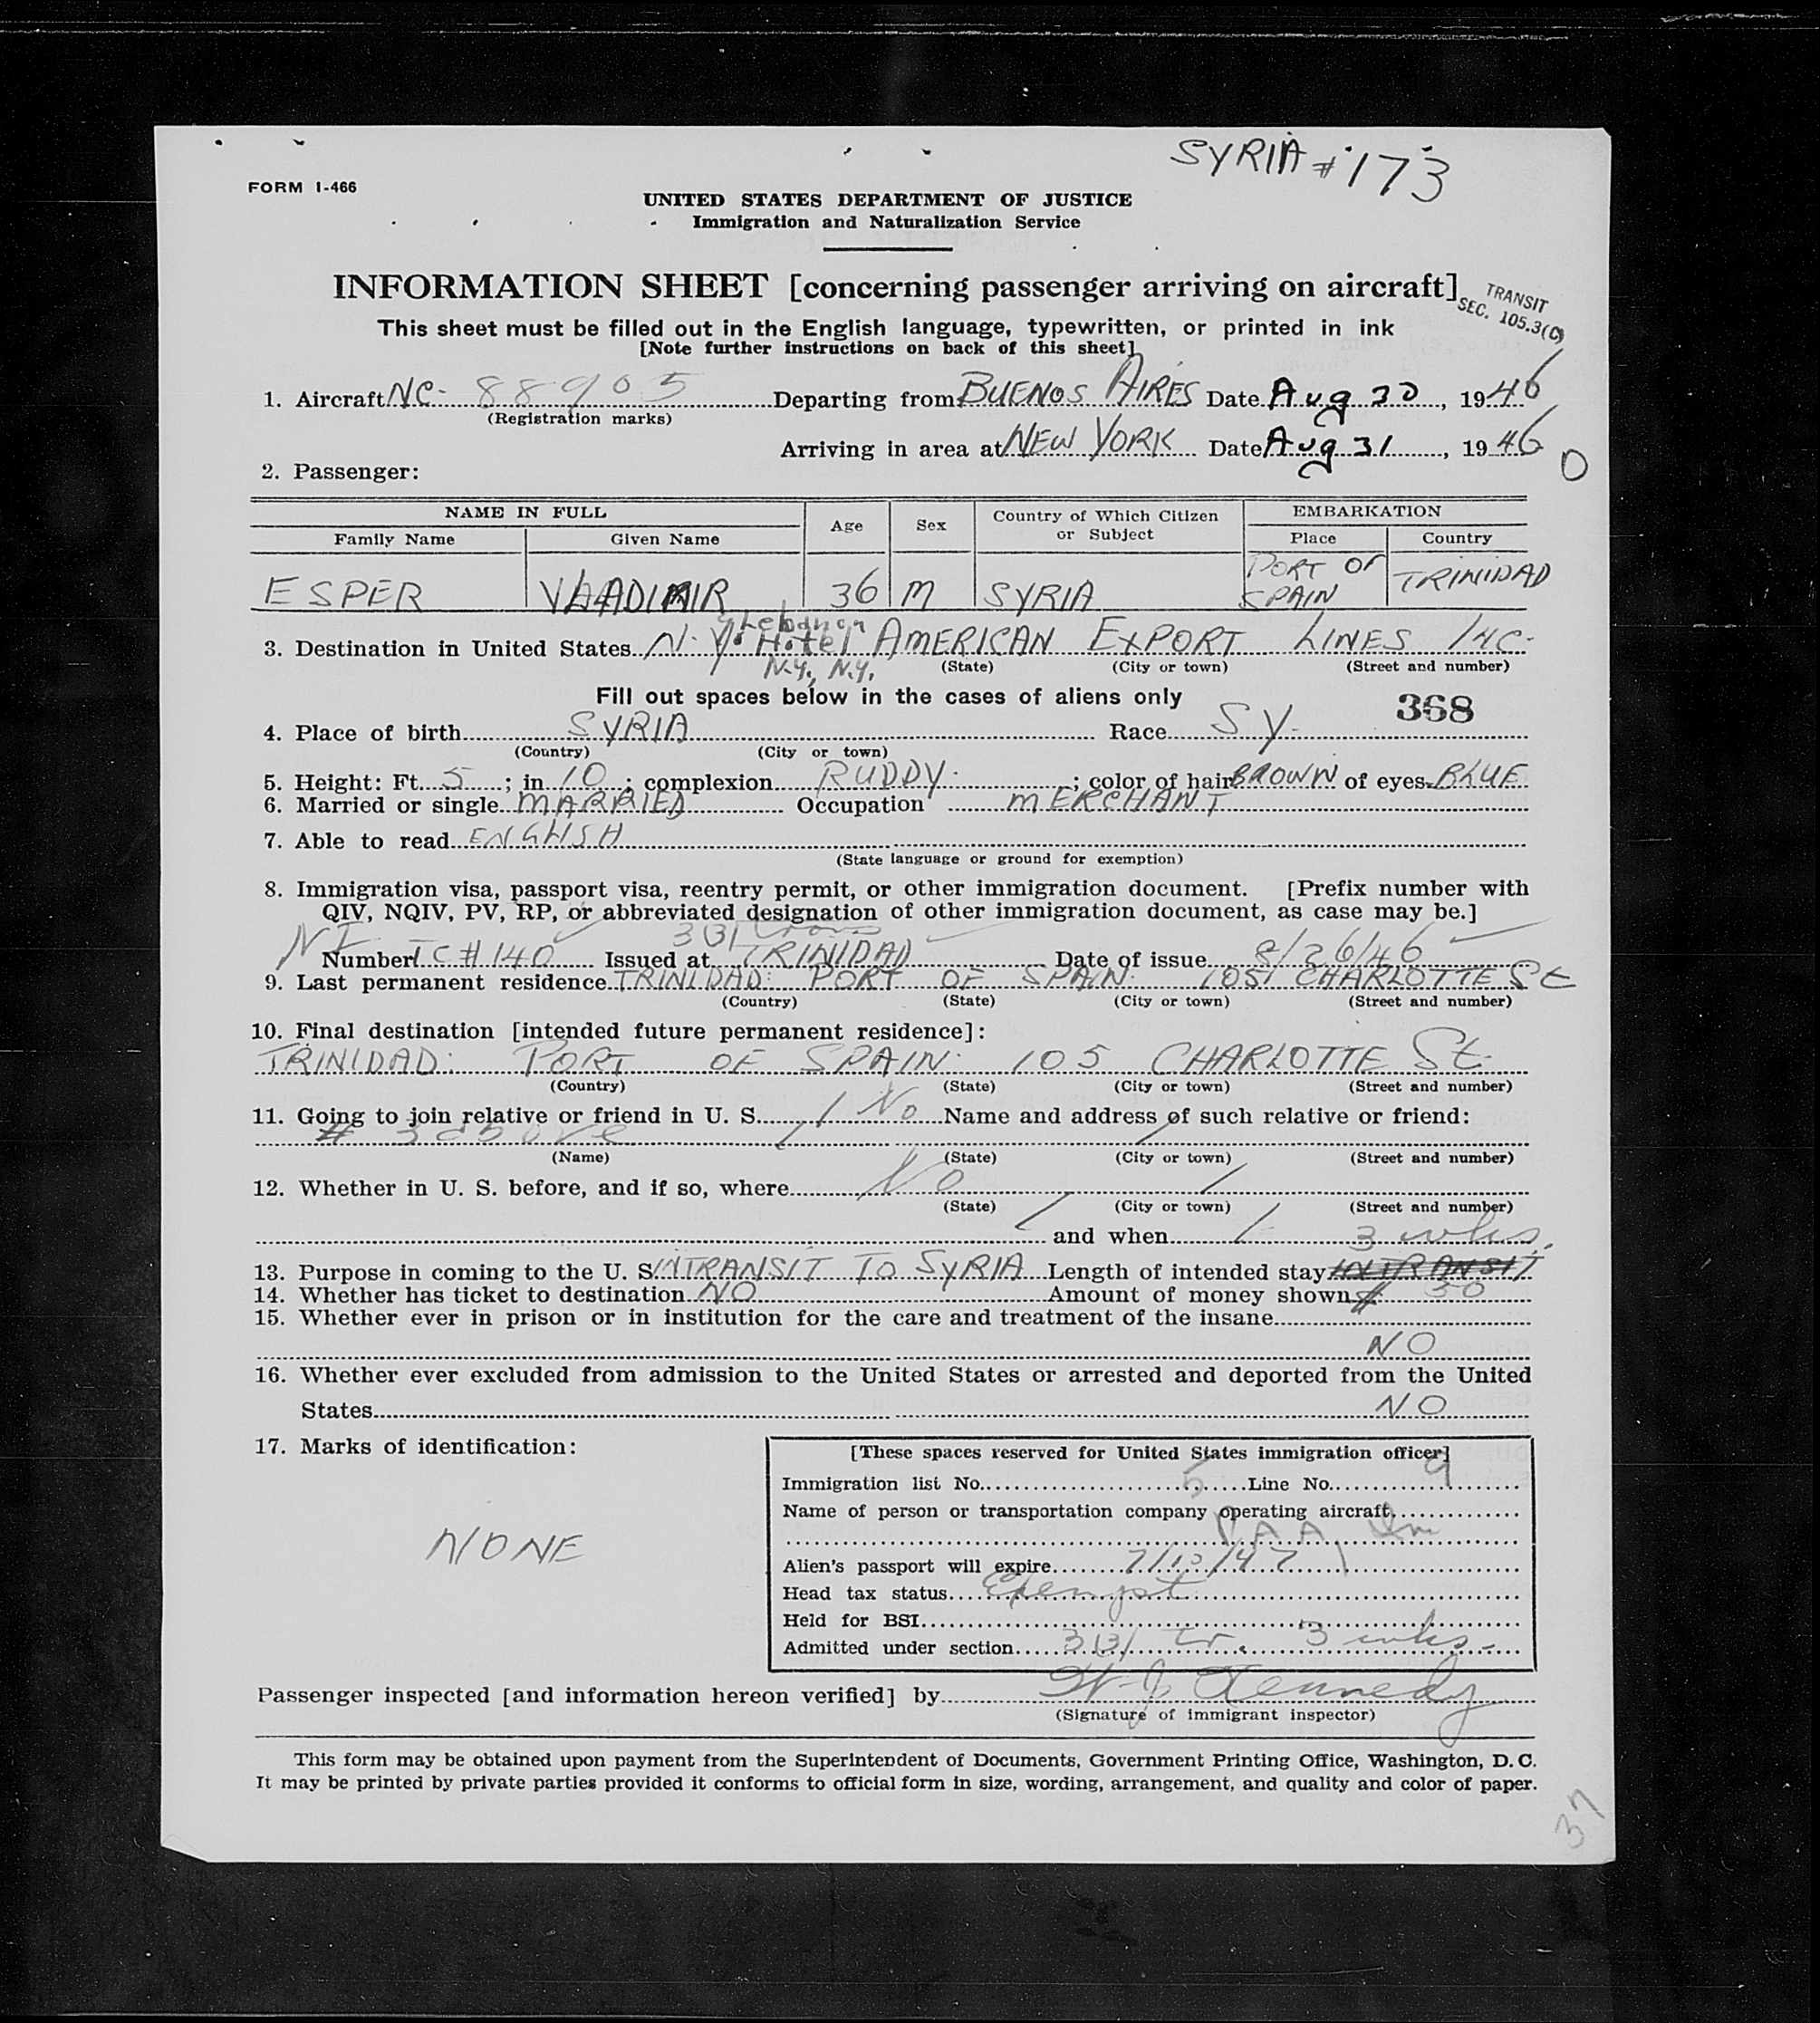 SYRIA # 173
FORM I-466
UNITED STATES DEPARTMENT OF JUSTICE
Immigration and Naturalization Service
INFORMATION SHEET [concerning passenger arriving on aircraft]
TRANSIT
SEC. 105.3(C)
This sheet must be filled out in the English language, typewritten, or printed in ink
[Note further instructions on back of this sheet]
1. Aircraft NC- 88905 Departing from BUENOS AIRES Date Aug 30, 1946
(Registration marks)
Arriving in area at NEW YORK Date Aug 31, 1946
O
2. Passenger:
NAME IN FULL Age Sex Country of Which Citizen or Subject EMBARKATION
Family Name Given Name Place Country
ESPER VLADIMIR 36 M SYRIA PORT OF SPAIN TRINIDAD
Lebanon
3. Destination in United States N.Y. Hotel AMERICAN EXPORT LINES INC.
N.Y., N.Y. (State) (City or town) (Street and number)
Fill out spaces below in the cases of aliens only 368
4. Place of birth SYRIA Race SY.
(Country) (City or town)
5. Height: Ft. 5; in 10; complexion RUDDY; color of hair BROWN of eyes BLUE
6. Married or single MARRIED Occupation MERCHANT
7. Able to read ENGLISH
(State language or ground for exemption)
8. Immigration visa, passport visa, reentry permit, or other immigration document. [Prefix number with
QIV, NQIV, PV, RP, or abbreviated designation of other immigration document, as case may be.]
NI 3(3)
Number TC # 140 Issued at TRINIDAD Date of issue 8/26/46
9. Last permanent residence TRINIDAD: PORT OF SPAIN: 105 CHARLOTTE St
(Country) (State) (City or town) (Street and number)
10. Final destination [intended future permanent residence]:
TRINIDAD: PORT OF SPAIN: 105 CHARLOTTE St.
(Country) (State) (City or town) (Street and number)
11. Going to join relative or friend in U. S. / No Name and address of such relative or friend:
# 3 above
(Name) (State) (City or town) (Street and number)
12. Whether in U. S. before, and if so, where NO
(State) (City or town) (Street and number)
and when 3 wks.
13. Purpose in coming to the U. S. INTRANSIT TO SYRIA Length of intended stay INTRANSIT
14. Whether has ticket to destination NO Amount of money shown $ 50
15. Whether ever in prison or in institution for the care and treatment of the insane
NO
16. Whether ever excluded from admission to the United States or arrested and deported from the United
States NO
17. Marks of identification:
NONE
[These spaces reserved for United States immigration officer]
Immigration list No. 5 Line No. 9
Name of person or transportation company operating aircraft
PAA
Alien's passport will expire 7/13/47
Head tax status Exempt
Held for BSI
Admitted under section 3(3) tr. 3 wks.
Passenger inspected [and information hereon verified] by W J Kennedy
(Signature of immigrant inspector)
This form may be obtained upon payment from the Superintendent of Documents, Government Printing Office, Washington, D. C.
It may be printed by private parties provided it conforms to official form in size, wording, arrangement, and quality and color of paper.
37